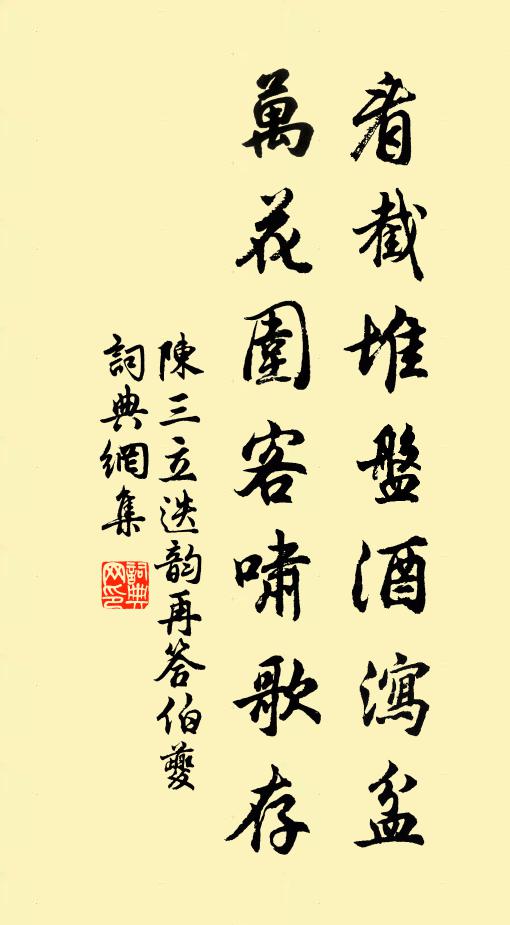 肴截堆盤酒瀉盆
萬花圍客嘯歌存
陳三立迭韵再答伯夔
詞典網集
詞典網印